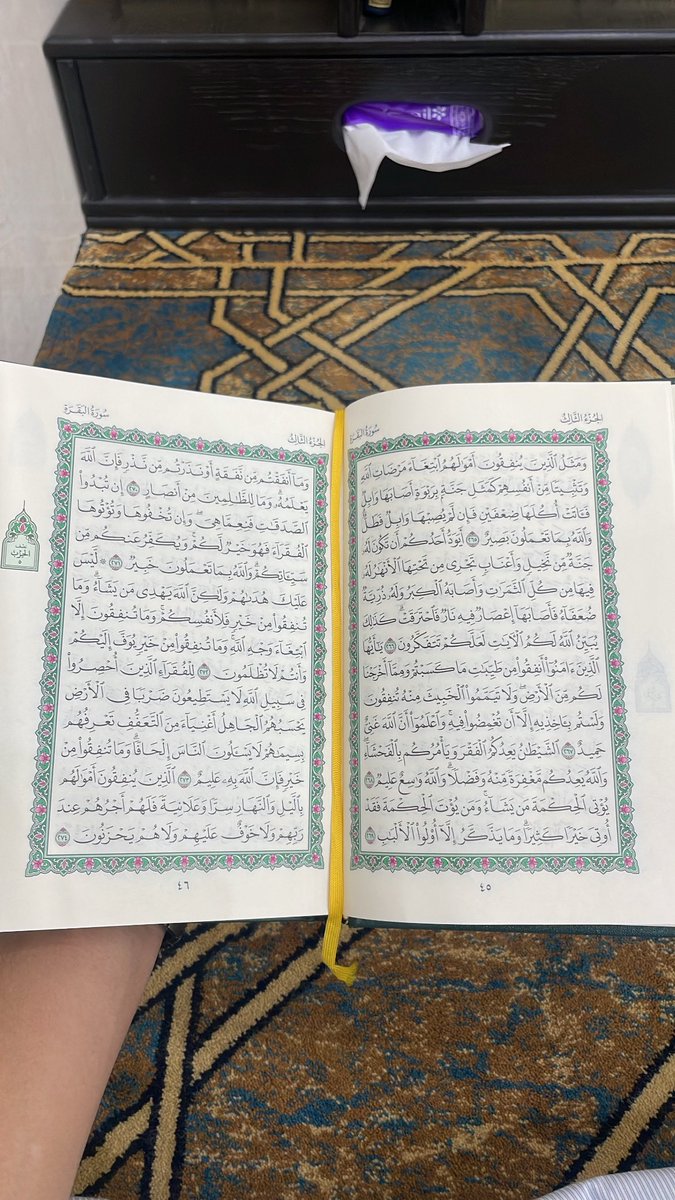 الجزء الثالث
سورة البقرة
وَمَثَلُ ٱلَّذِينَ يُنفِقُونَ أَمْوَٰلَهُمُ ٱبْتِغَآءَ مَرْضَاتِ ٱللَّهِ
وَتَثْبِيتًا مِّنْ أَنفُسِهِمْ كَمَثَلِ جَنَّةٍۭ بِرَبْوَةٍ أَصَابَهَا وَابِلٌ
فَـَٔاتَتْ أُكُلَهَا ضِعْفَيْنِ فَإِن لَّمْ يُصِبْهَا وَابِلٌ فَطَلٌّ
وَٱللَّهُ بِمَا تَعْمَلُونَ بَصِيرٌ ٢٦٥ أَيَوَدُّ أَحَدُكُمْ أَن تَكُونَ لَهُۥ
جَنَّةٌ مِّن نَّخِيلٍ وَأَعْنَابٍ تَجْرِى مِن تَحْتِهَا ٱلْأَنْهَٰرُ لَهُۥ
فِيهَا مِن كُلِّ ٱلثَّمَرَٰتِ وَأَصَابَهُ ٱلْكِبَرُ وَلَهُۥ ذُرِّيَّةٌ
ضُعَفَآءُ فَأَصَابَهَآ إِعْصَارٌ فِيهِ نَارٌ فَٱحْتَرَقَتْ ۗ كَذَٰلِكَ
يُبَيِّنُ ٱللَّهُ لَكُمُ ٱلْـَٔايَٰتِ لَعَلَّكُمْ تَتَفَكَّرُونَ ٢٦٦ يَٰٓأَيُّهَا
ٱلَّذِينَ ءَامَنُوٓا۟ أَنفِقُوا۟ مِن طَيِّبَٰتِ مَا كَسَبْتُمْ وَمِمَّآ أَخْرَجْنَا
لَكُم مِّنَ ٱلْأَرْضِ ۖ وَلَا تَيَمَّمُوا۟ ٱلْخَبِيثَ مِنْهُ تُنفِقُونَ
وَلَسْتُم بِـَٔاخِذِيهِ إِلَّآ أَن تُغْمِضُوا۟ فِيهِ ۚ وَٱعْلَمُوٓا۟ أَنَّ ٱللَّهَ غَنِىٌّ
حَمِيدٌ ٢٦٧ ٱلشَّيْطَٰنُ يَعِدُكُمُ ٱلْفَقْرَ وَيَأْمُرُكُم بِٱلْفَحْشَآءِ ۖ
وَٱللَّهُ يَعِدُكُم مَّغْفِرَةً مِّنْهُ وَفَضْلًا ۗ وَٱللَّهُ وَٰسِعٌ عَلِيمٌ ٢٦٨
يُؤْتِى ٱلْحِكْمَةَ مَن يَشَآءُ ۚ وَمَن يُؤْتَ ٱلْحِكْمَةَ فَقَدْ
أُوتِىَ خَيْرًا كَثِيرًا ۗ وَمَا يَذَّكَّرُ إِلَّآ أُو۟لُوا۟ ٱلْأَلْبَٰبِ ٢٦٩
٤٥
الجزء الثالث
سورة البقرة
وَمَآ أَنفَقْتُم مِّن نَّفَقَةٍ أَوْ نَذَرْتُم مِّن نَّذْرٍ فَإِنَّ ٱللَّهَ
يَعْلَمُهُۥ ۗ وَمَا لِلظَّٰلِمِينَ مِنْ أَنصَارٍ ٢٧٠ إِن تُبْدُوا۟
ٱلصَّدَقَٰتِ فَنِعِمَّا هِىَ ۖ وَإِن تُخْفُوهَا وَتُؤْتُوهَا
ٱلْفُقَرَآءَ فَهُوَ خَيْرٌ لَّكُمْ ۚ وَيُكَفِّرُ عَنكُم مِّن
سَيِّـَٔاتِكُمْ ۗ وَٱللَّهُ بِمَا تَعْمَلُونَ خَبِيرٌ ٢٧١ ۞ لَّيْسَ
عَلَيْكَ هُدَىٰهُمْ وَلَٰكِنَّ ٱللَّهَ يَهْدِى مَن يَشَآءُ ۗ وَمَا
تُنفِقُوا۟ مِنْ خَيْرٍ فَلِأَنفُسِكُمْ ۚ وَمَا تُنفِقُونَ إِلَّا
ٱبْتِغَآءَ وَجْهِ ٱللَّهِ ۚ وَمَا تُنفِقُوا۟ مِنْ خَيْرٍ يُوَفَّ إِلَيْكُمْ
وَأَنتُمْ لَا تُظْلَمُونَ ٢٧٢ لِلْفُقَرَآءِ ٱلَّذِينَ أُحْصِرُوا۟
فِى سَبِيلِ ٱللَّهِ لَا يَسْتَطِيعُونَ ضَرْبًا فِى ٱلْأَرْضِ
يَحْسَبُهُمُ ٱلْجَاهِلُ أَغْنِيَآءَ مِنَ ٱلتَّعَفُّفِ تَعْرِفُهُم
بِسِيمَٰهُمْ لَا يَسْـَٔلُونَ ٱلنَّاسَ إِلْحَافًا ۗ وَمَا تُنفِقُوا۟ مِنْ
خَيْرٍ فَإِنَّ ٱللَّهَ بِهِۦ عَلِيمٌ ٢٧٣ ٱلَّذِينَ يُنفِقُونَ أَمْوَٰلَهُم
بِٱلَّيْلِ وَٱلنَّهَارِ سِرًّا وَعَلَانِيَةً فَلَهُمْ أَجْرُهُمْ عِندَ
رَبِّهِمْ وَلَا خَوْفٌ عَلَيْهِمْ وَلَا هُمْ يَحْزَنُونَ ٢٧٤
الحزب
٥
٤٦